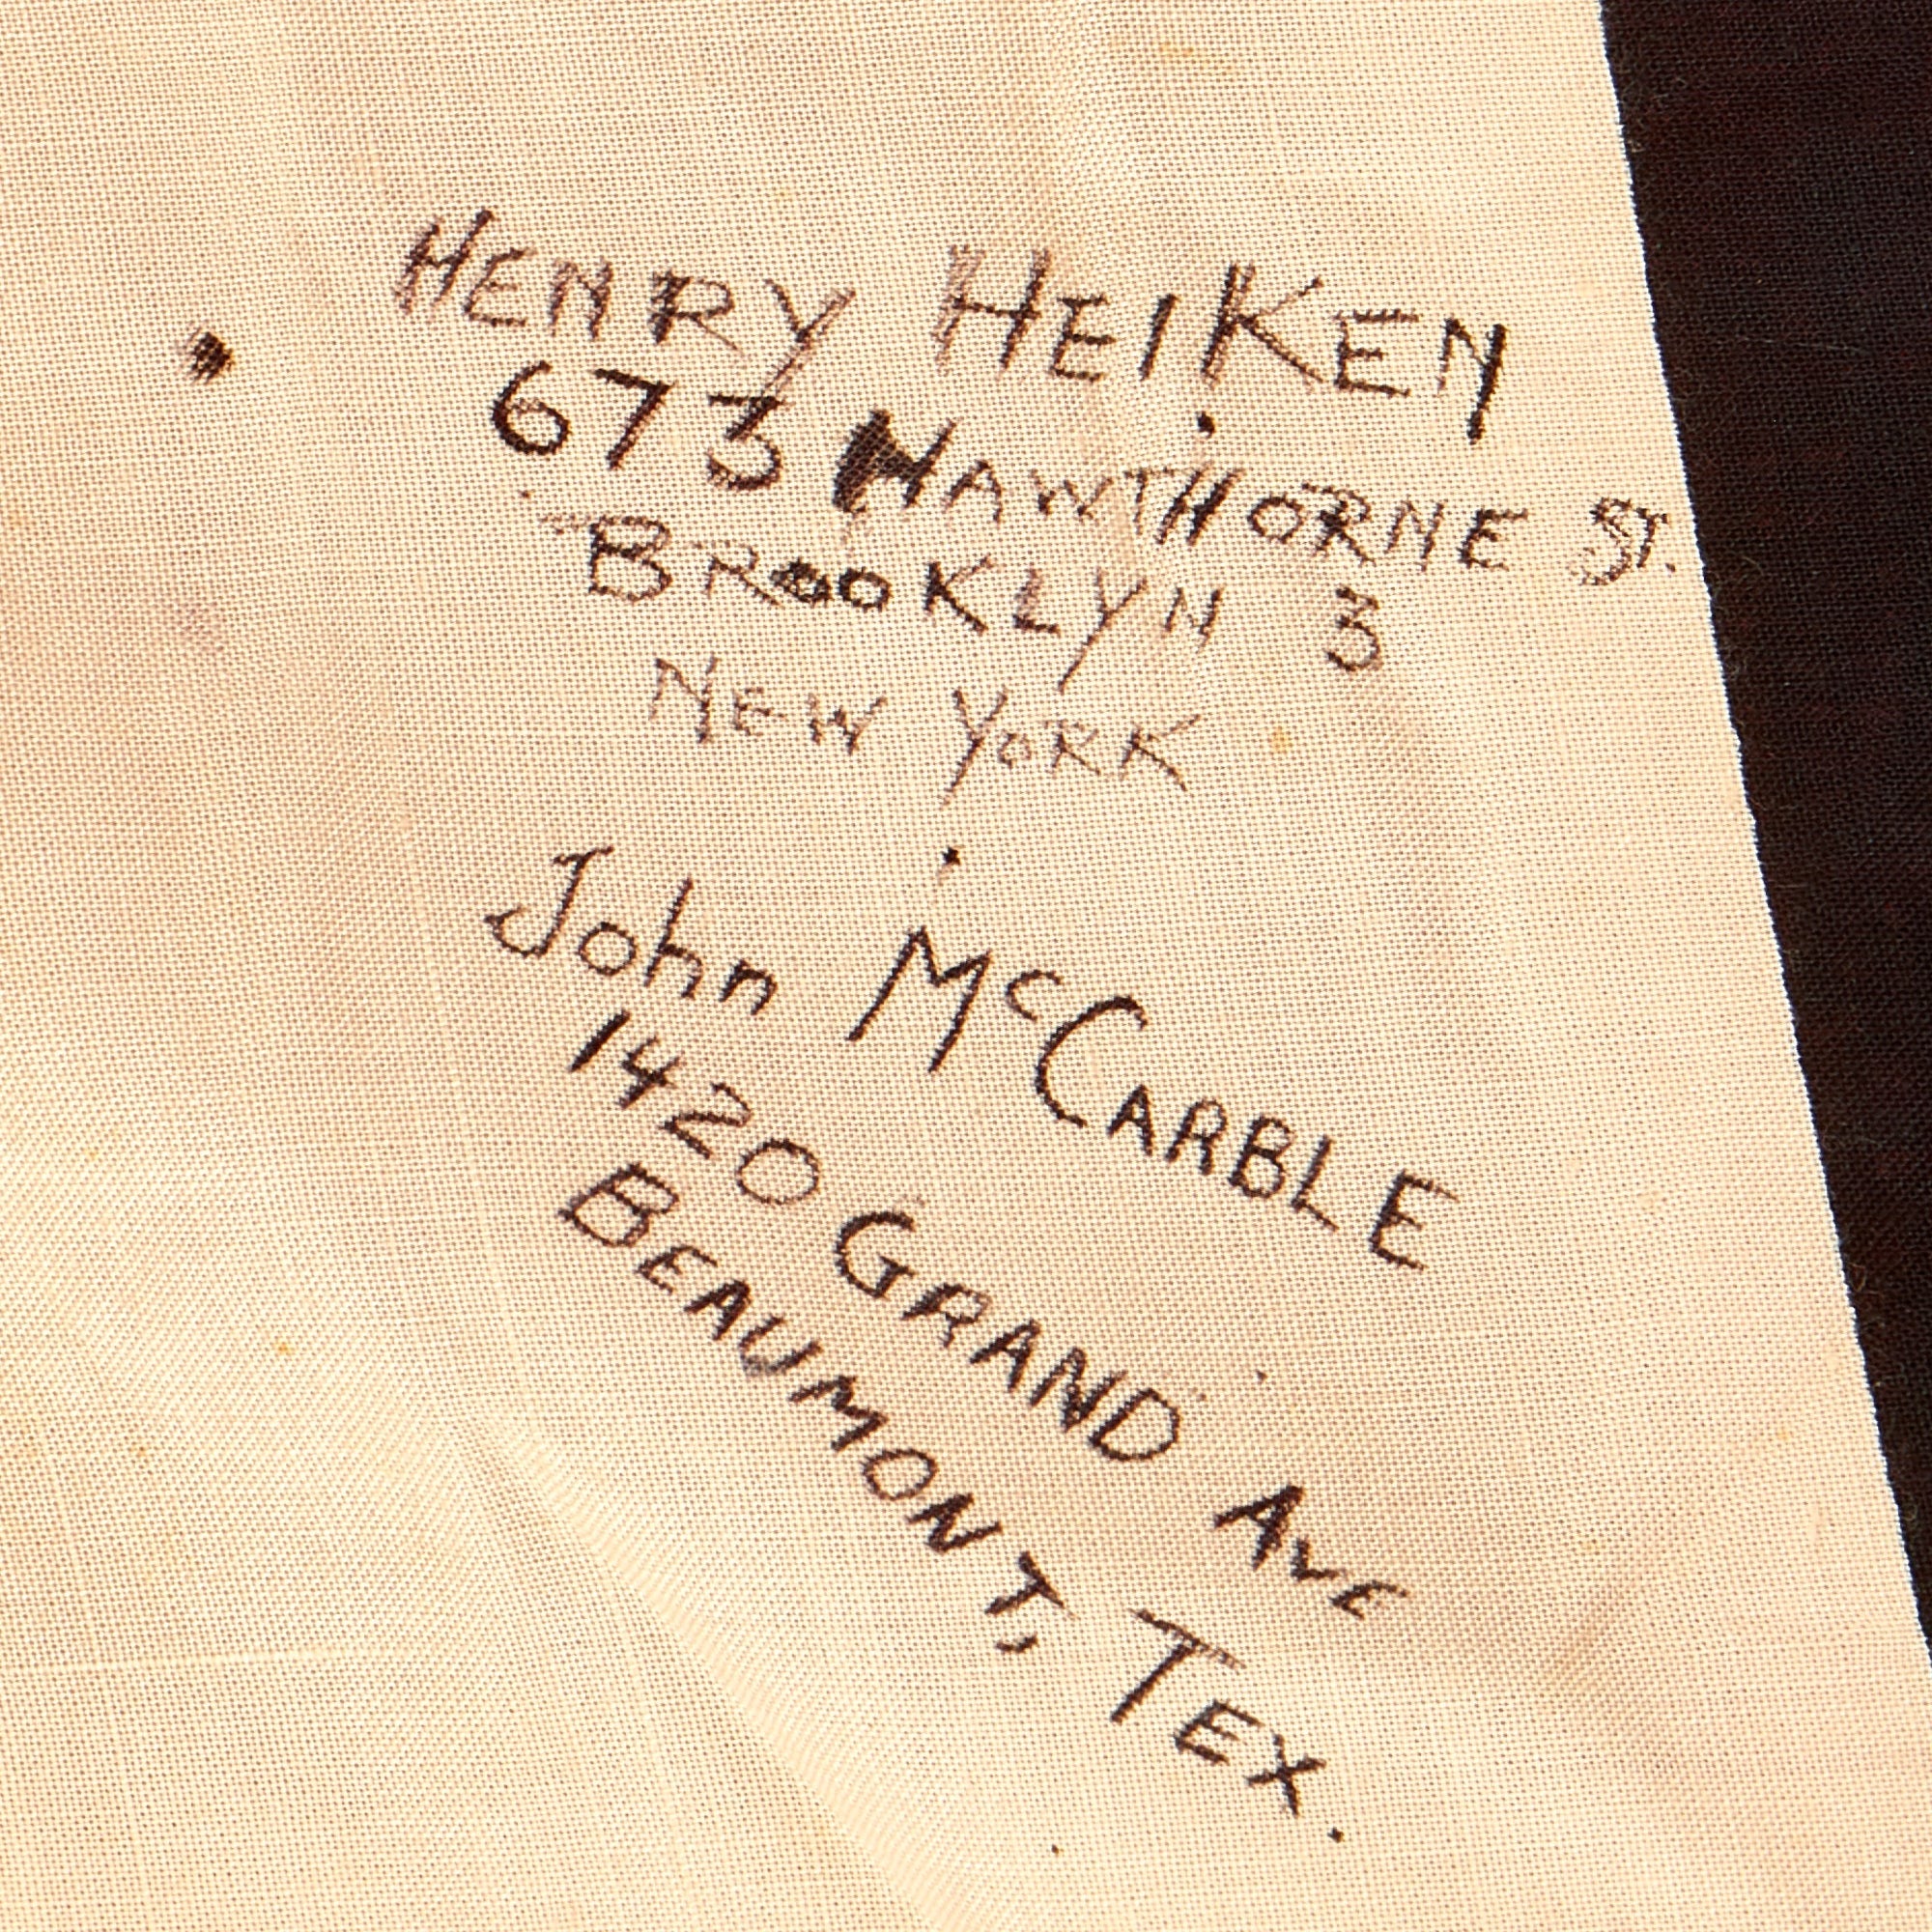 HENRY HEIKEN
673 HAWTHORNE ST.
BROOKLYN 3
NEW YORK
John McCARBLE
1420 GRAND AVE
BEAUMONT, TEX.